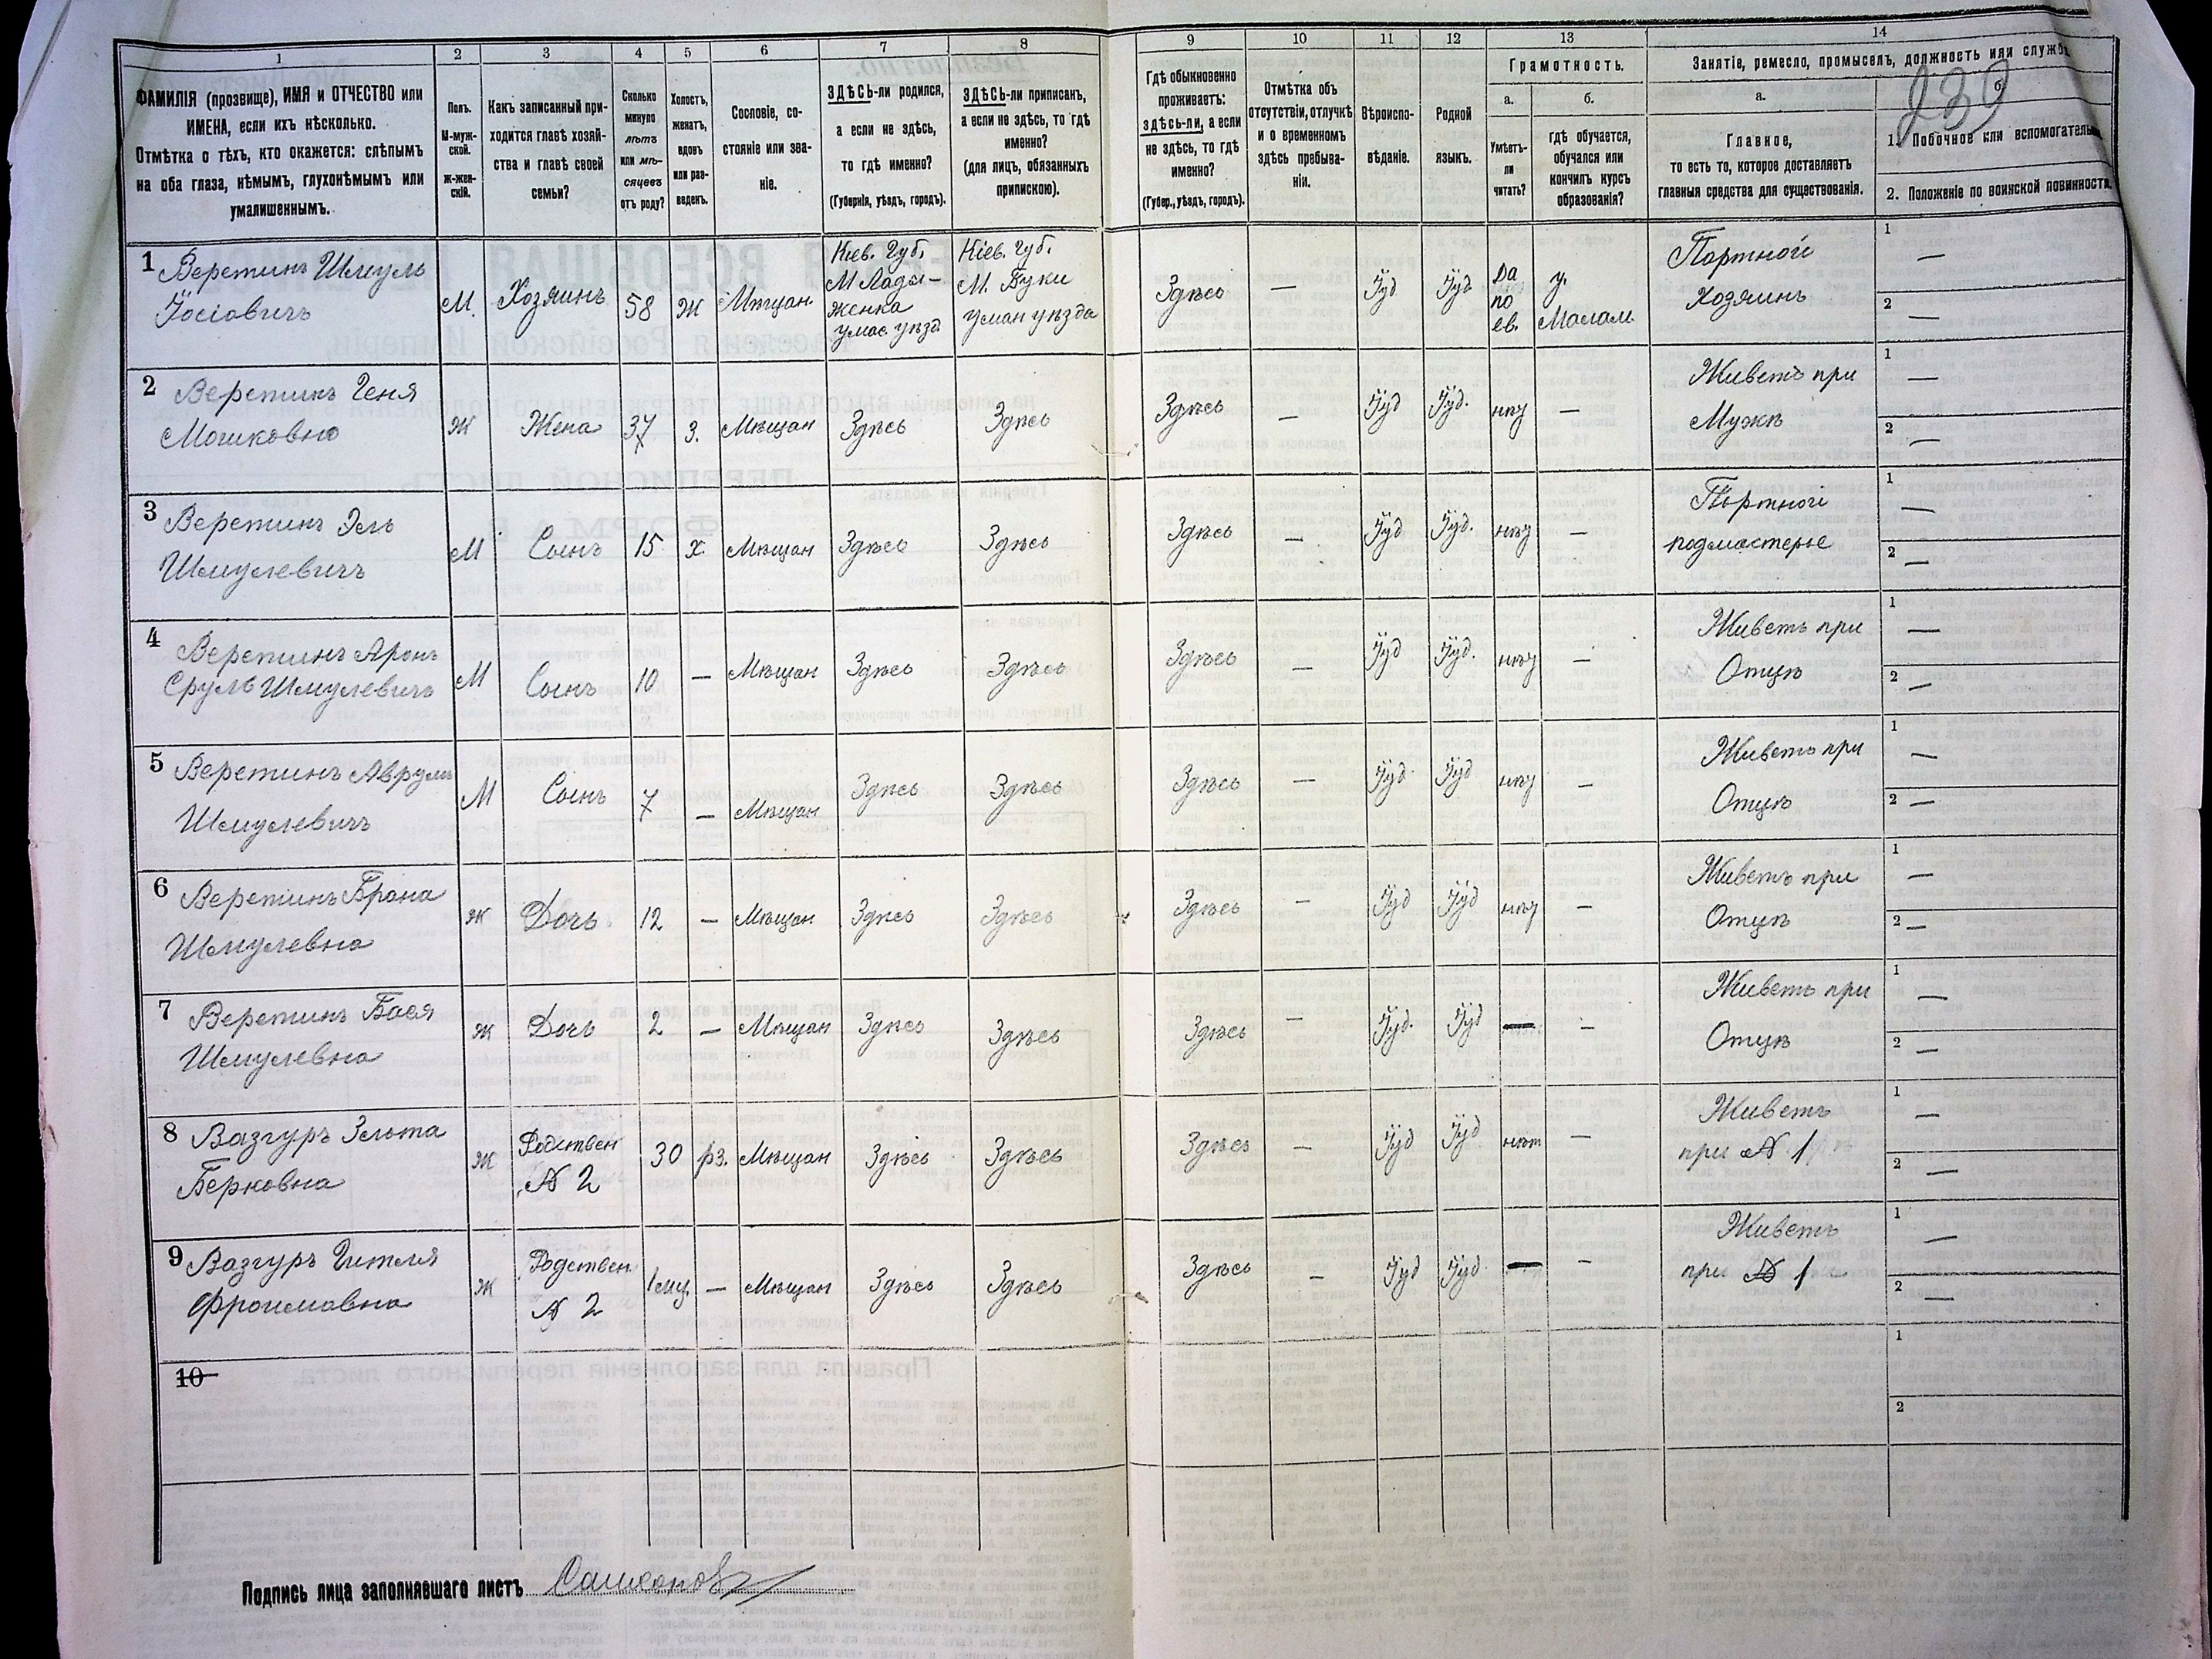 1 2 3 4 5 6 7 8 9 10 11 12 13 14
ФАМИЛІЯ (прозвище), ИМЯ и ОТЧЕСТВО или
ИМЕНА, если ихъ нѣсколько.
Отмѣтка о тѣхъ, кто окажется: слѣпымъ
на оба глаза, нѣмымъ, глухонѣмымъ или
умалишеннымъ.
Полъ.
М-муж-
ской.
ж-жен-
скій.
Какъ записанный при-
ходится главѣ хозяй-
ства и главѣ своей
семьи?
Сколько
минуло
лѣтъ
или мѣ-
сяцевъ
отъ роду?
Холостъ,
женатъ,
вдовъ
или раз-
веденъ.
Сословіе, со-
стояніе или зва-
ніе.
ЗДѢСЬ-ли родился,
а если не здѣсь,
то гдѣ именно?
(Губернія, уѣздъ, городъ).
ЗДѢСЬ-ли приписанъ,
а если не здѣсь, то гдѣ
именно?
(для лицъ, обязанныхъ
припискою).
Гдѣ обыкновенно
проживаетъ:
здѣсь-ли, а если
не здѣсь, то гдѣ
именно?
(Губер., уѣздъ, городъ).
Отмѣтка объ
отсутствіи, отлучкѣ
и о временномъ
здѣсь пребыва-
ніи.
Вѣроиспо-
вѣданіе.
Родной
языкъ.
Грамотность.
а.
Умѣетъ-
ли
читать?
б.
гдѣ обучается,
обучался или
кончилъ курсъ
образованія?
Занятіе, ремесло, промыселъ, должность или служб
а.
Главное,
то есть то, которое доставляетъ
главныя средства для существованія.
б.
239
1. Побочное или вспомогатель
2. Положеніе по воинской повинности.
1 Веретинъ Шмуль
Іосіовичъ
М. Хозяинъ 58 Ж Мѣщан.
Кіев. Губ.
М Лады-
женка
умас уѣзд
Кіев. Губ.
М. Буки
уман уѣзда
Здѣсь — Іуд Іуд
Да
по
ев.
у.
Мелам.
Портной
Хозяинъ
1 —
2 —
2 Веретинъ Геня
Мошковна
Ж Жена 37 З. Мѣщан Здѣсь Здѣсь Здѣсь — Іуд Іуд. нѣт —
Живетъ при
Мужѣ
1 —
2 —
3 Веретинъ Эль
Шмулевичъ
М Сынъ 15 х. Мѣщан Здѣсь Здѣсь Здѣсь — Іуд Іуд. нѣт —
Портной
подмастерье
1 —
2 —
4 Веретинъ Аронъ
Сруль Шмулевичъ
М Сынъ 10 — Мѣщан Здѣсь Здѣсь Здѣсь — Іуд Іуд. нѣт —
Живетъ при
Отцѣ
1 —
2 —
5 Веретинъ Аврумъ
Шмулевичъ
М Сынъ 7 — Мѣщан Здѣсь Здѣсь Здѣсь — Іуд Іуд нѣт —
Живетъ при
Отцѣ
1 —
2 —
6 Веретинъ Брана
Шмулевна
Ж Дочь 12 — Мѣщан Здѣсь Здѣсь Здѣсь — Іуд Іуд нѣт —
Живетъ при
Отцѣ
1 —
2 —
7 Веретинъ Бася
Шмулевна
Ж Дочь 2 — Мѣщан Здѣсь Здѣсь Здѣсь — Іуд. Іуд — —
Живетъ при
Отцѣ
1 —
2 —
8 Вазгуръ Зельта
Берковна
Ж Родствен
№ 2
30 рз. Мѣщан Здѣсь Здѣсь Здѣсь — Іуд Іуд нѣт —
Живетъ
при № 1
1 —
2 —
9 Вазгуръ Гитля
Фроимовна
Ж Родствен
№ 2
1 — Мѣщан Здѣсь Здѣсь Здѣсь — Іуд Іуд — —
Живетъ
при № 1
1 —
2 —
10
1
2
Подпись лица заполнявшаго листъ